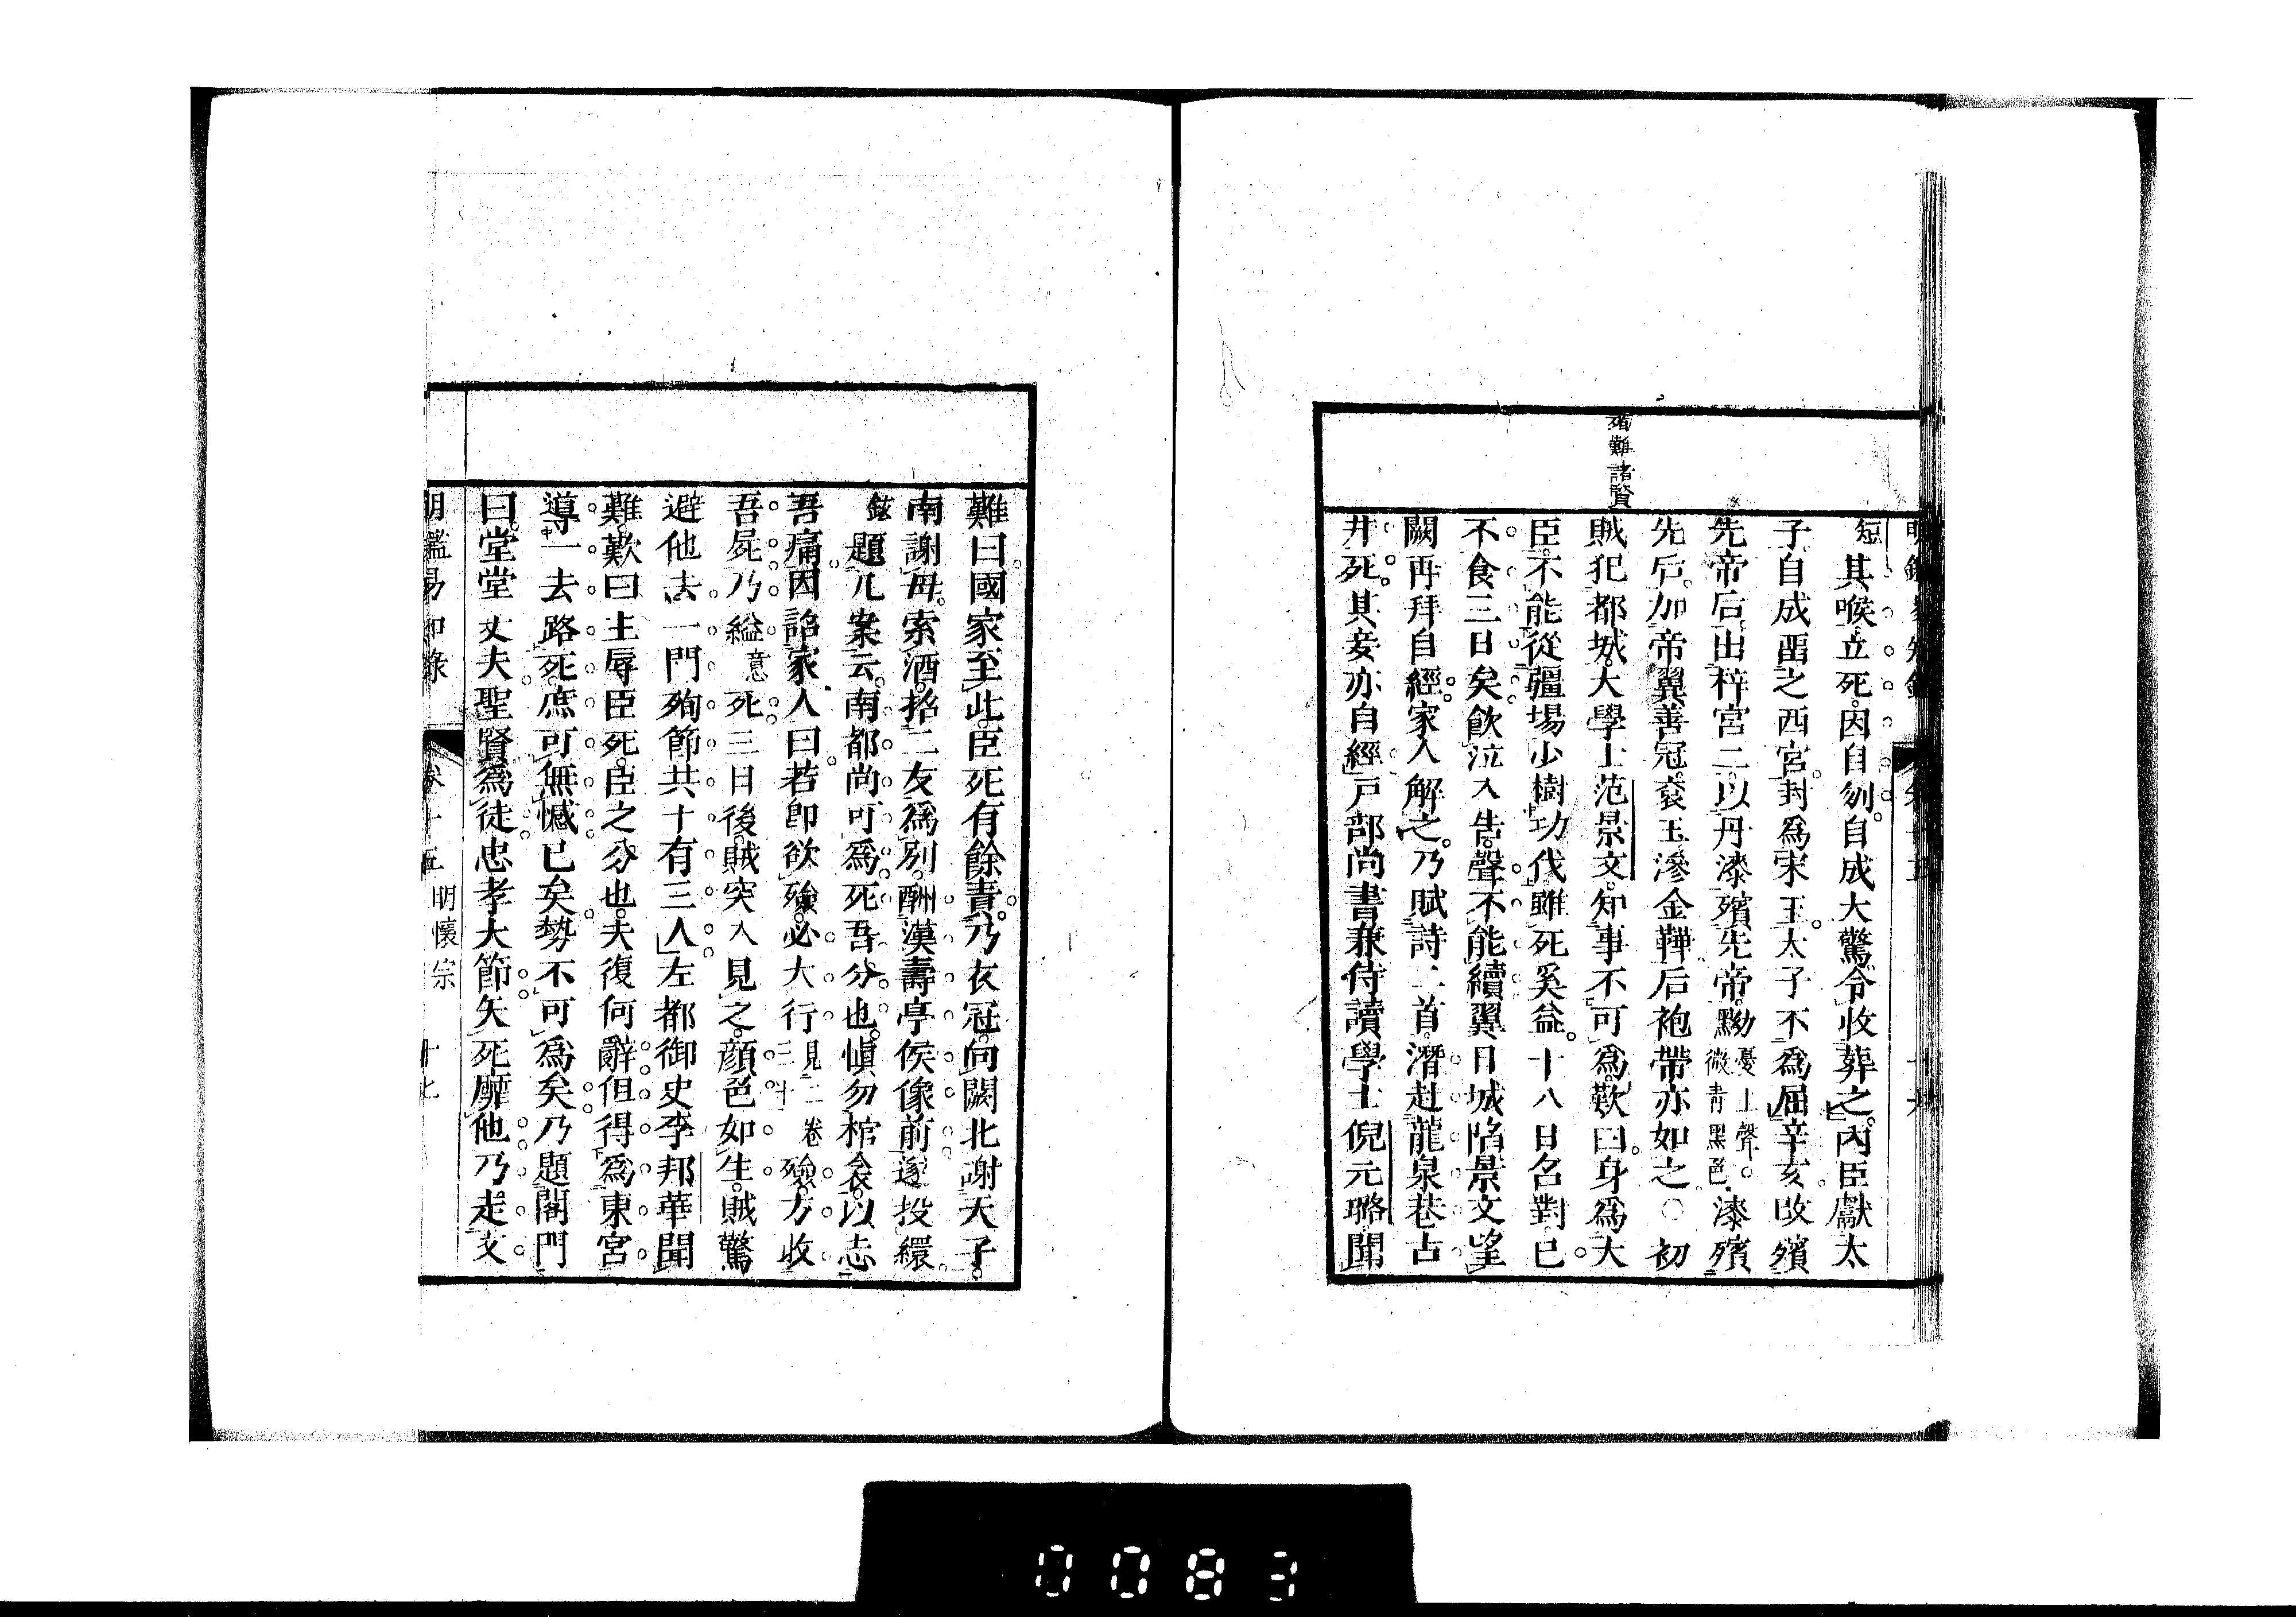 明鑑易知錄 卷十五
殉難諸賢
短其喉立死因自刎自成大驚令收葬之內臣獻太
子自成畱之西宮封爲宋王太子不爲屈辛亥改殯
先帝后出梓宮二以丹漆殯先帝黝憂上聲微青黑色漆殯
先后加帝翼善冠袞玉滲金鞾后袍帶亦如之○初
賊犯都城大學士范景文知事不可爲歎曰身爲大
臣不能從疆場少樹功伐雖死奚益十八日召對已
不食三日矣飲泣入告聲不能續翼日城陷景文望
闕再拜自經家人解之乃賦詩二首潛赴龍泉巷古
井死其妾亦自經戶部尚書兼侍讀學士倪元璐聞
難曰國家至此臣死有餘責乃衣冠向闕北謝天子
南謝母索酒招二友爲別酬漢壽亭侯像前遂投繯
鉉題几案云南都尚可爲死吾分也愼勿棺衾以志
吾痛因詔家人曰若卽欲殮必大行見二卷三十殮方收
吾屍乃縊意死三日後賊突入見之顏色如生賊驚
避他去一門殉節共十有三人左都御史李邦華聞
難歎曰主辱臣死臣之分也夫復何辭但得爲東宮
導一去路死庶可無憾已矣勢不可爲矣乃題閣門
曰堂堂丈夫聖賢爲徒忠孝大節矢死靡他乃走文
明鑑易知錄 卷十五 明懷宗 十七
0083